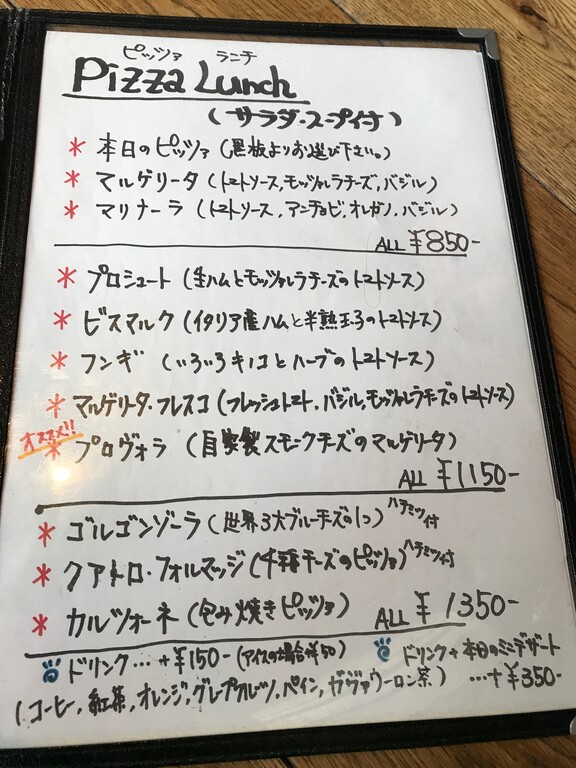 ピッツァ ランチ
Pizza Lunch
(サラダ・スープ付)
* 本日のピッツァ (黒板よりお選び下さい。)
* マルゲリータ (トマトソース,モッツァレラチーズ,バジル)
* マリナーラ (トマトソース,アンチョビ,オレガノ,バジル)
ALL ¥850-
* プロシュート (生ハムとモッツァレラチーズのトマトソース)
* ビスマルク (イタリア産ハムと半熟玉子のトマトソース)
* フンギ (いろいろキノコとハーブのトマトソース)
* マルゲリータ・フレスコ (フレッシュトマト,バジル,モッツァレラチーズのトマトソース)
オススメ!!
* プロヴォラ (自家製スモークチーズのマルゲリータ)
ALL ¥1150-
* ゴルゴンゾーラ (世界3大ブルーチーズの1つ) ハチミツ付
* クアトロ・フォルマッジ (4種チーズのピッツァ) ハチミツ付
* カルツォーネ (包み焼きピッツァ) ALL ¥1350-
ドリンク…+¥150- (アイスの場合+¥50)
ドリンク+本日のミニデザート …+¥350-
(コーヒー,紅茶,オレンジ,グレープフルーツ,パイン,ウーロン茶)